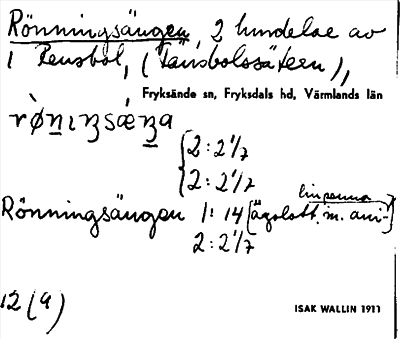 Rönningsängen, 2 hundelar av
1 Rensbol, (Tänsbolssätern),
Fryksände sn, Fryksdals hd, Värmlands län
rø̀nɩŋsǽŋa
2:2 1/7
2:2 1/7
linpenna
Rönningsängen 1:14 [ägolott. m. ani-]
2:2 1/7
12 (a)
ISAK WALLIN 1911